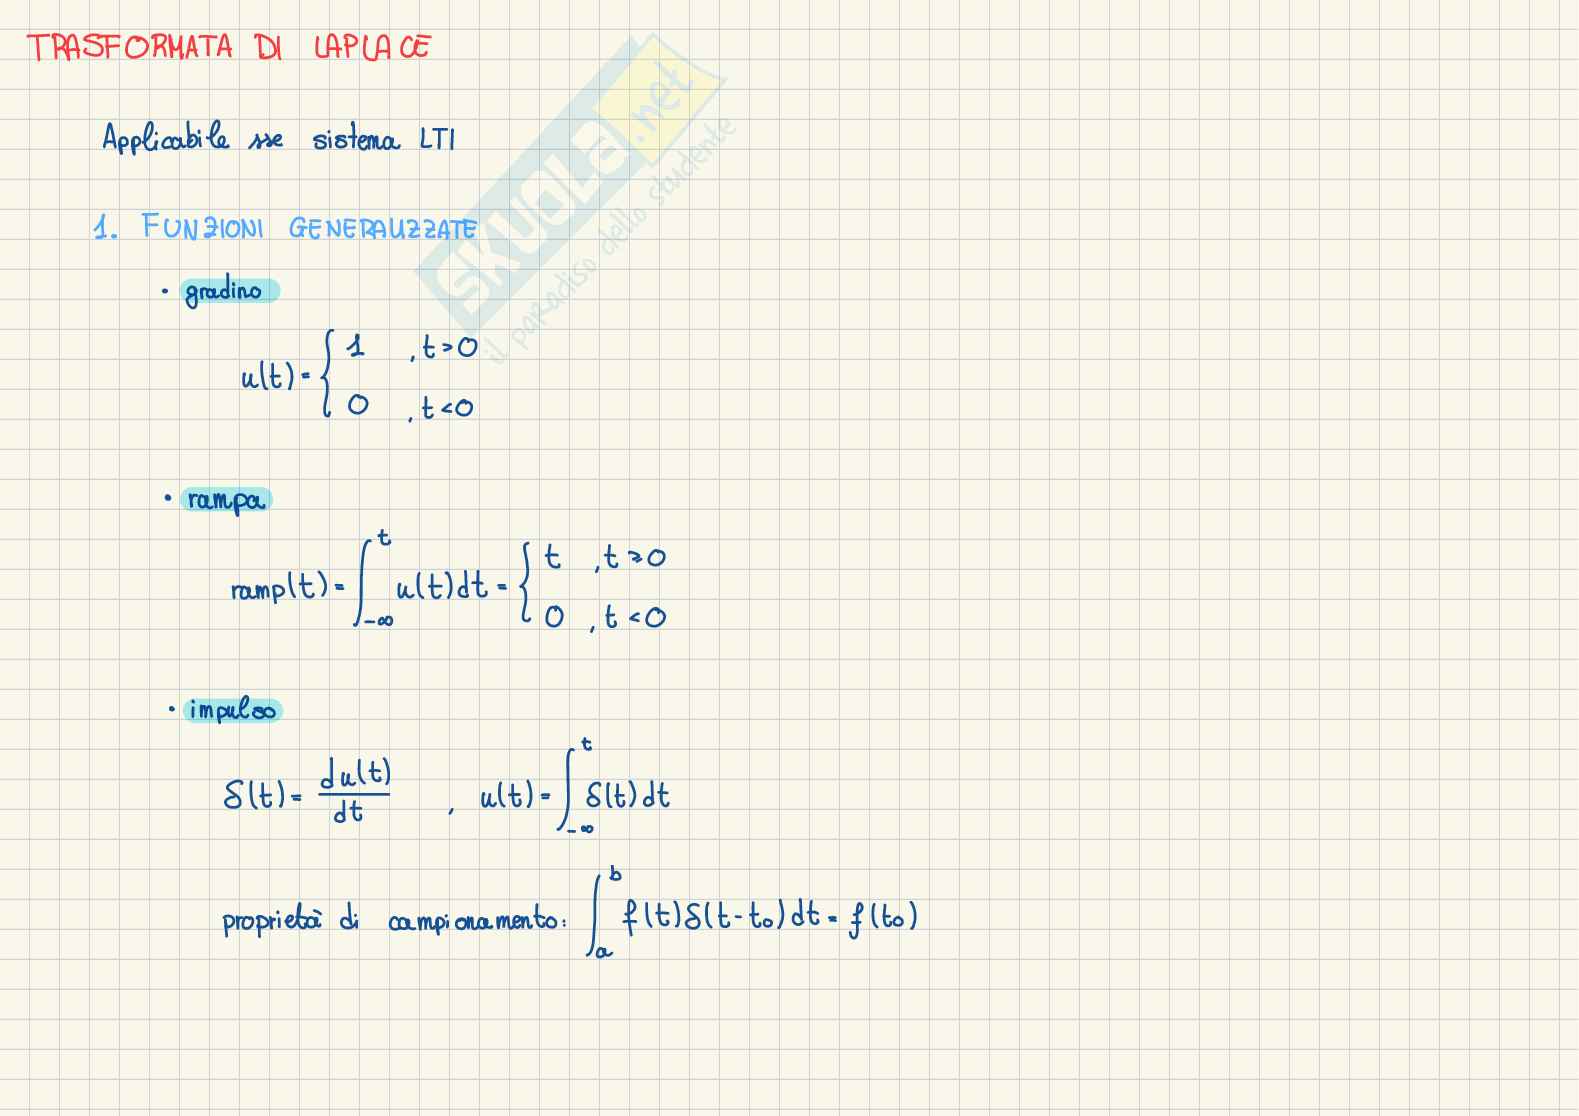 TRASFORMATA DI LAPLACE
Applicabile sse sistema LTI
1. FUNZIONI GENERALIZZATE
• gradino
u(t) = { 1 , t > 0
0 , t < 0
• rampa
ramp(t) = ∫_{-∞}^{t} u(t) dt = { t , t ≥ 0
0 , t < 0
• impulso
δ(t) = du(t)/dt , u(t) = ∫_{-∞}^{t} δ(t) dt
proprietà di campionamento: ∫_{a}^{b} f(t) δ(t - t₀) dt = f(t₀)
SKUOLA.net
il paradiso dello studente